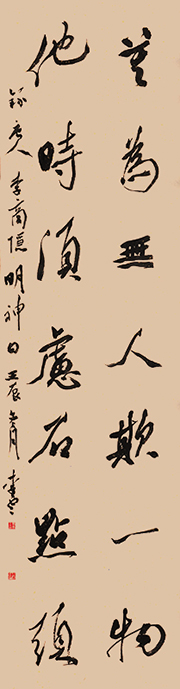 莫為無人欺一物
他時須慮石點頭
錄唐人李商隱明神句壬辰月李